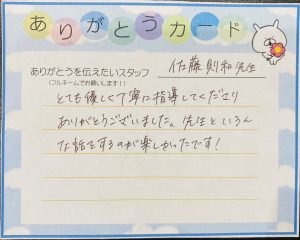 ありがとうカード
ありがとうを伝えたいスタッフ
(フルネームでお願いします！)
佐藤 則和先生
とても優しく丁寧に指導してくださり
ありがとうございました。先生といろん
な話をするのが楽しかったです！